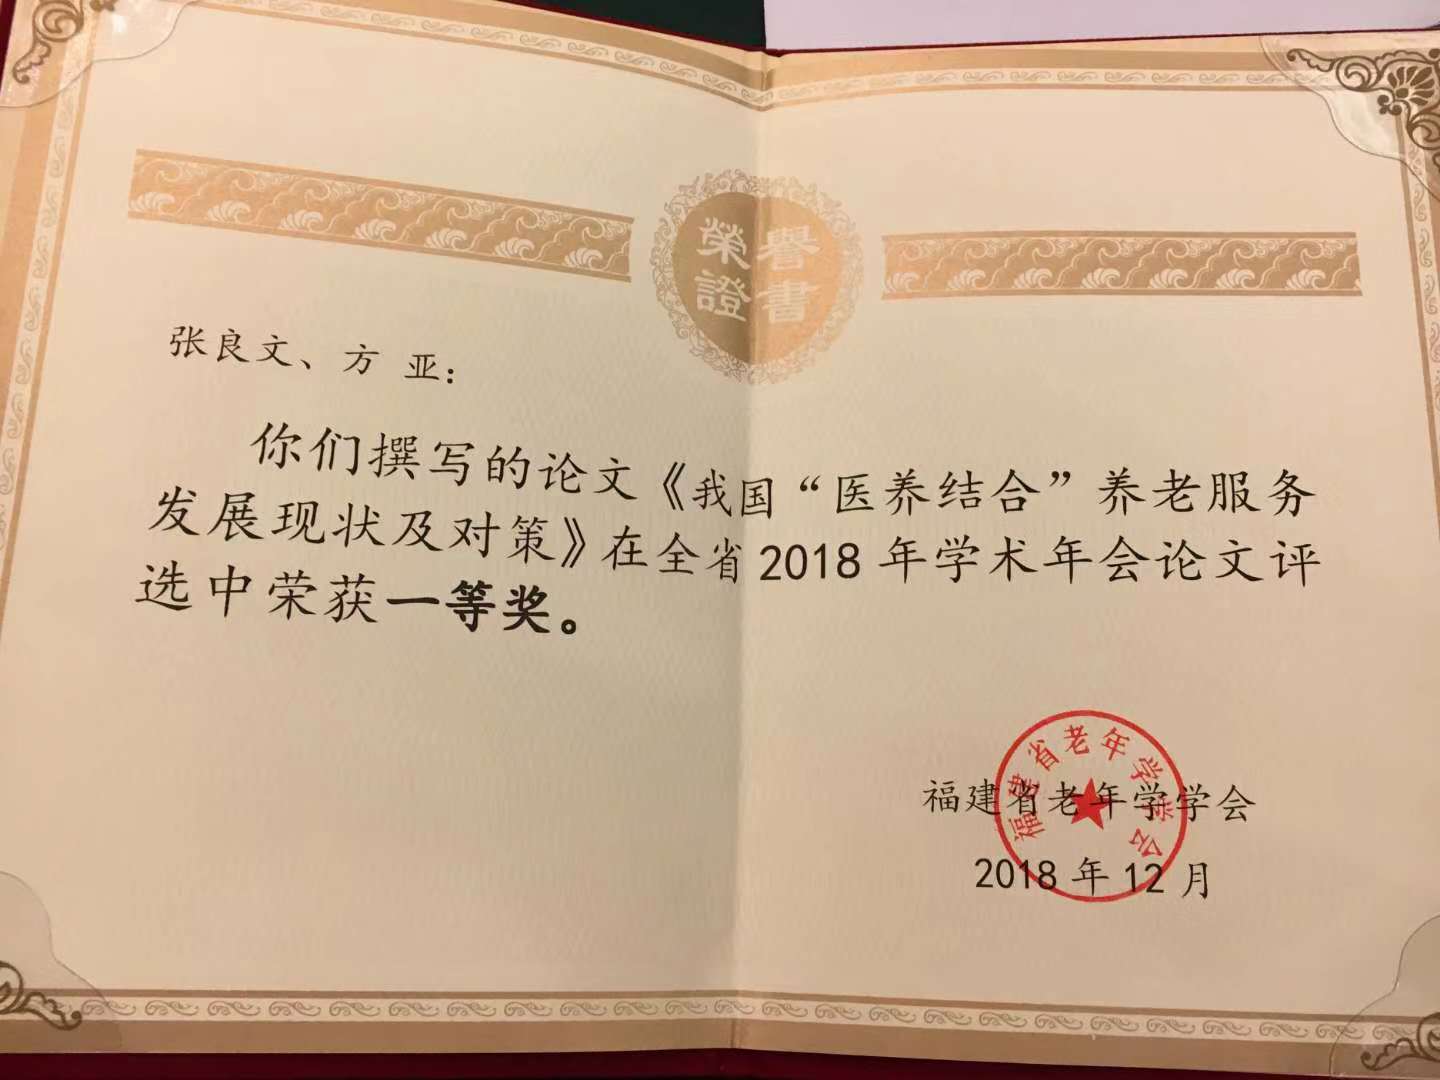 榮譽
證書
张良文、方 亚：
你们撰写的论文《我国“医养结合”养老服务
发展现状及对策》在全省2018年学术年会论文评
选中荣获一等奖。
福建省老年学学会
2018年12月
福建省老年学学会